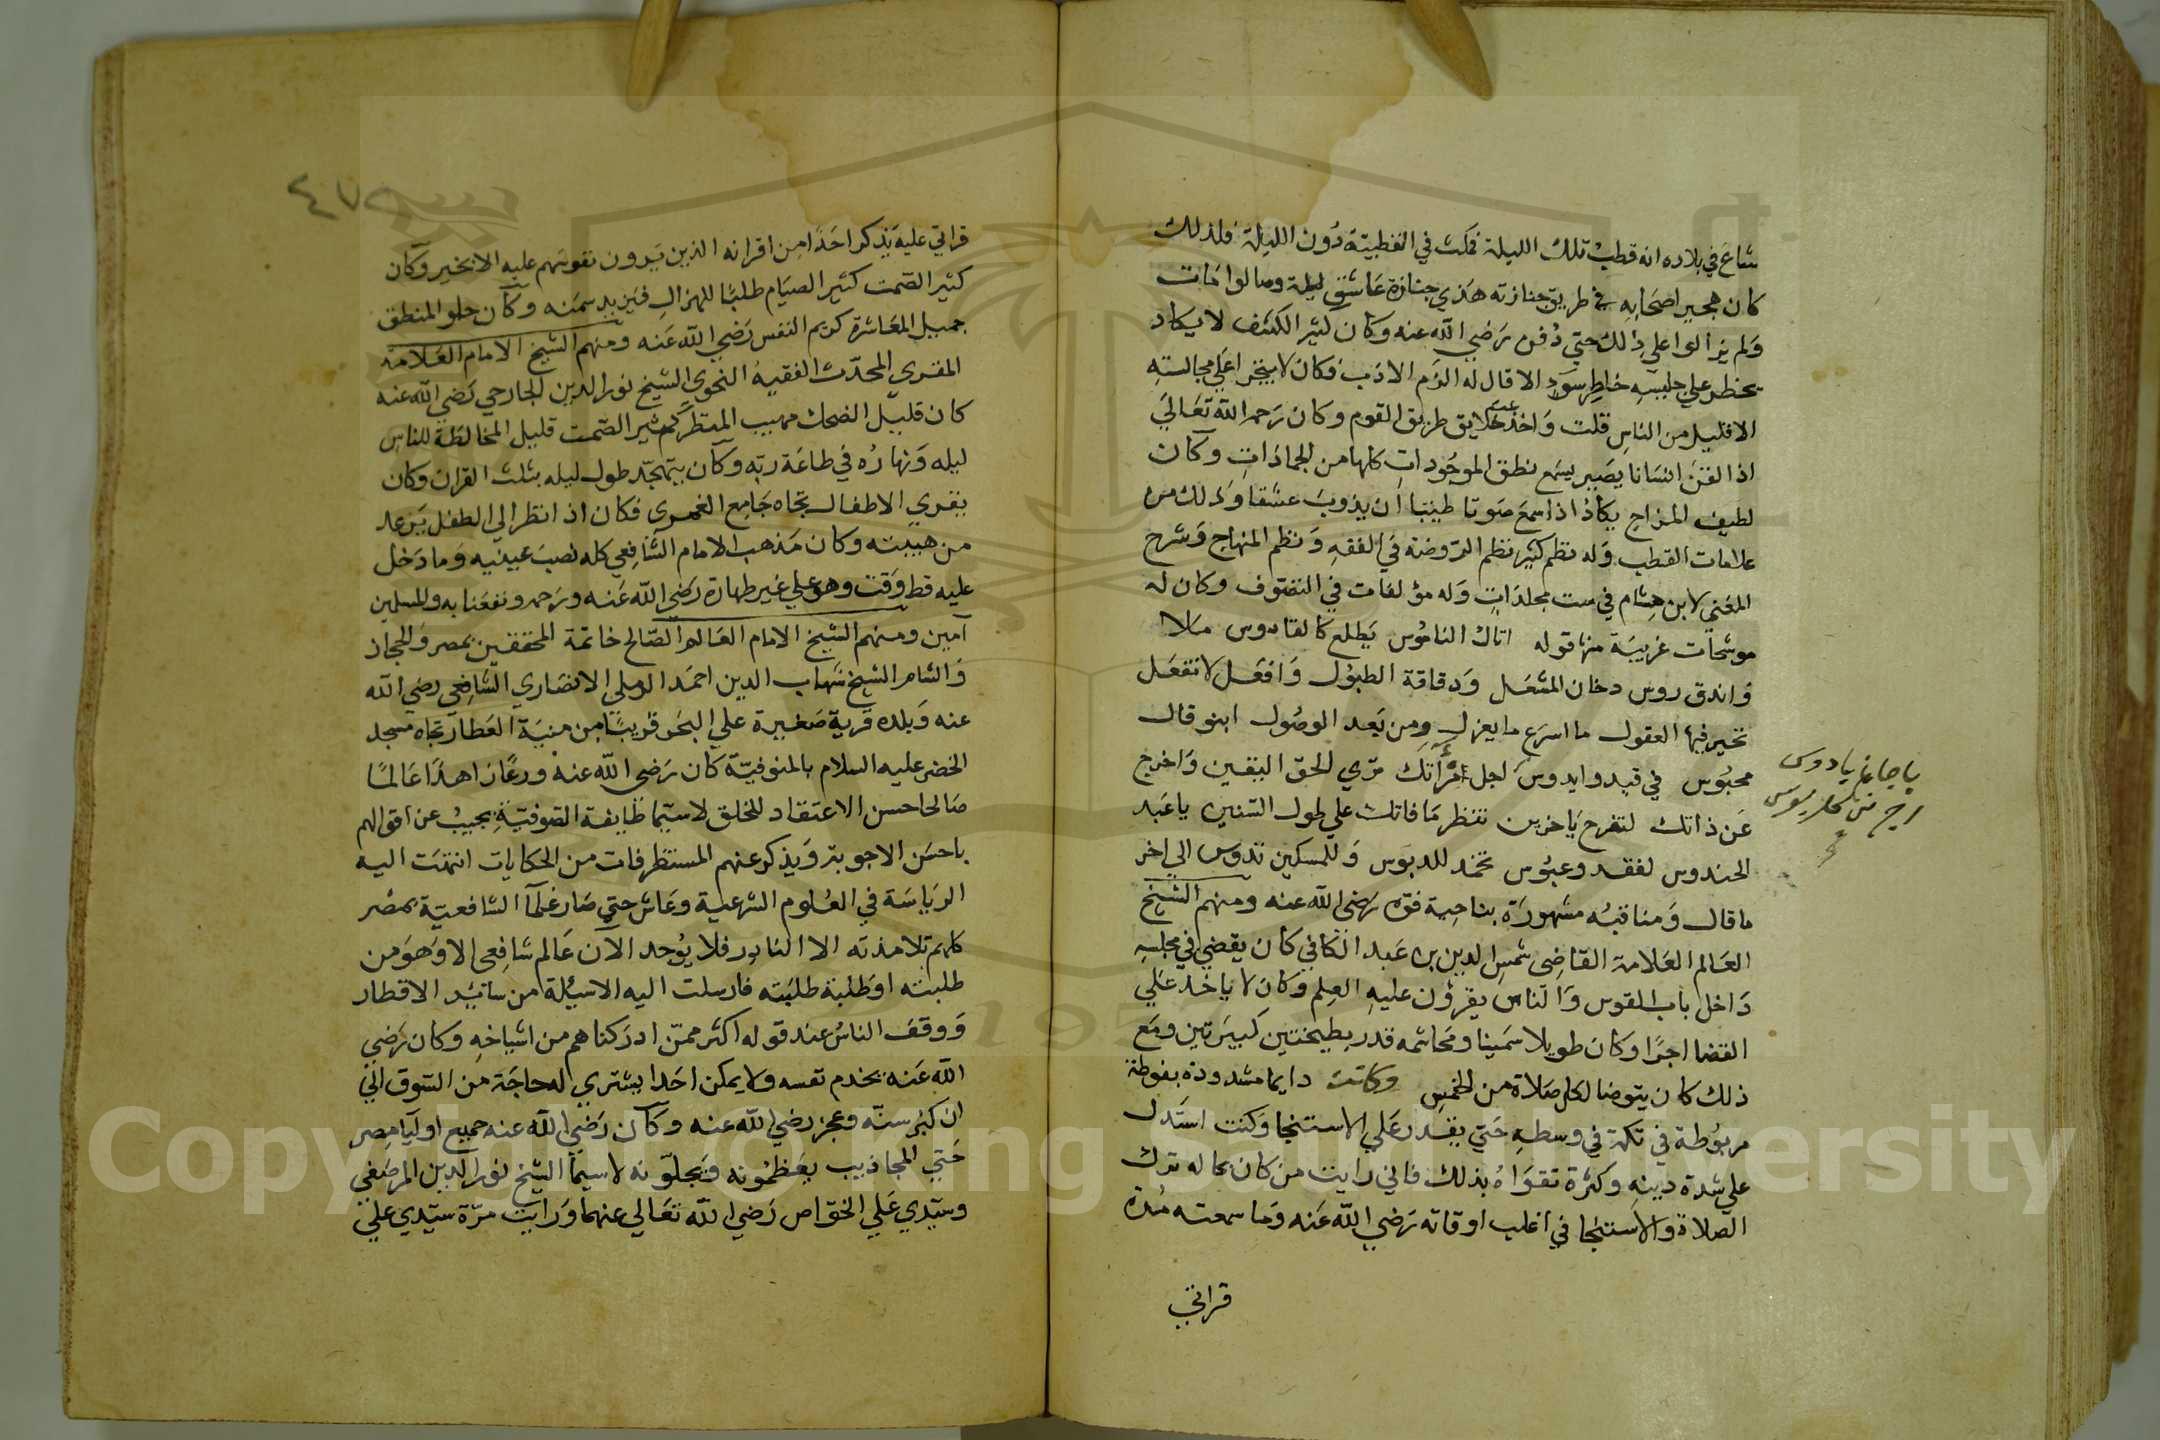 شاع في بلاده انه قطب تلك الليلة فمكث في القطبية دون الليلة فلذلك
كان هجير اصحابه في طريق جنازته هذي جنازة عاشق ليلة وصالو امات
ولم يزالوا على ذلك حتي دفن رضي الله عنه وكان كثير الكشف لا يكاد
يخطر علي جليسه خاطر سوء الا قال له الزم الادب فكان لا يتجرا علي مجالسته
الا قليل من الناس قلت واخذ عنه خلايق طريق القوم وكان رحمه الله تعالي
اذا لقن انسانا يصير يسمع نطق الموجودات كلها من الجمادات وكان
لطيف المزاج يكاد اذا سمع صوتا طيبا ان يذوب عشقا وذلك من
علامات القطب وله نظم كثير نظم الروضة في الفقه ونظم المنهاج وشرح
المغني لابن هشام في ست مجلدات وله مؤلفات في التصوف وكان له
موشحات غريبة منها قوله اتاك الناموس يطلع كالقادوس ملا
واندق روس دخان المشعل ودقاقة الطبول وافعل لا تفعل
تحير فيها العقول ما اسرع ما يعزل ومن بعد الوصول ابنو قال
محبوس في قيد وايدوس اجل امرأتك مرّي الحق اليقين واخرج
عن ذاتك لتفرح يا حزين تنظر ما فاتك علي طول السنين يا عبد
الحندوس لفقد وعبوس تخمد للدبوس وللمسكين تدوس الي اخر
ما قال ومناقبه مشهورة بناحية فوه رضي الله عنه ومنهم الشيخ
العالم العلامة القاضي شمس الدين بن عبد الكافي كان يقضي في مجلسه
داخل باب القوس والناس يقرؤن عليه العلم وكان لا ياخذ علي
القضا اجرا وكان طويلا سمينا ومحاشمه قدر بطيختين كبيرتين ومع
ذلك كان يتوضا لكل صلاة من الخمس وكانت دايما مشدودة بفوطة
مربوطة في تكة في وسطه حتي يقدر علي الاستنجا وكنت استدل
علي شدة دينه وكثرة تقواه بذلك فاني رايت من كان بحاله ترك
الصلاة والاستنجا في اغلب اوقاته رضي الله عنه وما سمعته مدة
قراتي
٤٧٥
قراتي عليه يذكر احدا من اقرانه الذين يرون نفوسهم عليه الا بخير وكان
كثير الصمت كثير الصيام طلبا للهزال فيزيد سمنه وكان حلو المنطق
جميل المعاشرة كريم النفس رضي الله عنه ومنهم الشيخ الامام العلامة
المقري المحدث الفقيه النحوي الشيخ نور الدين الجارحي رضي الله عنه
كان قليل الضحك مهيب المنظر كثير الصمت قليل المخالطة للناس
ليله ونهاره في طاعة ربه وكان يتهجد طول ليله بثلث القران وكان
يقري الاطفال تجاه جامع الغمري فكان اذا نظر الي الطفل يرعد
من هيبته وكان مذهب الامام الشافعي كله نصب عينيه وما دخل
عليه قط وقت وهو علي غير طهارة رضي الله عنه ورحمه ونفعنا به والمسلمين
آمين ومنهم الشيخ الامام العالم الصالح خاتمة المحققين بمصر والحجاز
والشام الشيخ شهاب الدين احمد الرملي الانصاري الشافعي رضي الله
عنه وبلده قرية صغيرة علي البحر قريبا من منية العطار تجاه مسجد
الخضر عليه السلام بالمنوفية كان رضي الله عنه ورعا زاهدا عالما
صالحا حسن الاعتقاد للخلق لا سيما طايفة الصوفية يجيب عن اقوالهم
باحسن الاجوبة ويذكر عنهم المستظرفات من الحكايات انتهت اليه
الرياسة في العلوم الشرعية وعاش حتي صار علما الشافعية بمصر
كلهم تلامذته الا النادر فلا يوجد الان عالم شافعي الا وهو من
طلبته او طلبة طلبته فارسلت اليه الاسئلة من سائر الاقطار
ووقف الناس عند قوله اكثر ممن ادركناهم من اشياخه وكان رضي
الله عنه يخدم نفسه ولا يمكن احدا يشتري له حاجة من السوق الي
ان كبر سنه وعجز رضي الله عنه وكان رضي الله عنه جميع اوليا مصر
حتي المجاذيب يعظمونه ويجلونه لا سيما الشيخ نور الدين المرصفي
وسيدي علي الخواص رضي الله تعالي عنهما ورايت مرة سيدي علي
Copyright © King Saud University
1957